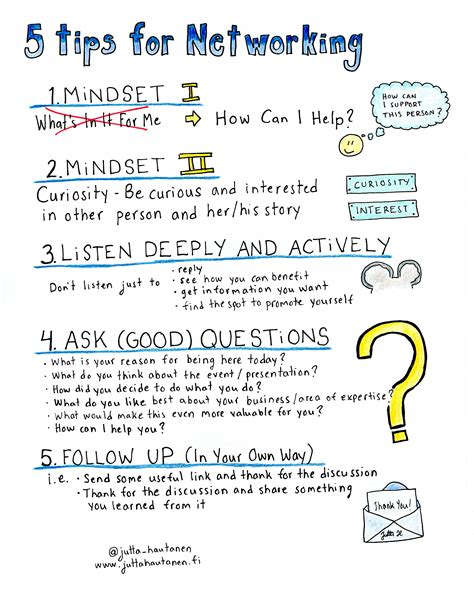 5 tips for Networking
1. MiNDSET I
What's In It For Me ⇨ How Can I Help?
HOW CAN
I SUPPORT
THIS PERSON?
2. MiNDSET II
Curiosity - Be curious and interested
in other person and her/his story
CURIOSITY
INTEREST
3. LISTEN DEEPLY AND ACTiVELY
Don't listen just to
• reply
• see how you can benefit
• get information you want
• find the spot to promote yourself
4. ASK (GOOD) QUESTiONS
• What is your reason for being here today?
• What do you think about the event/presentation?
• How did you decide to do what you do?
• What do you like best about your business/area of expertise?
• What would make this even more valuable for you?
• How can I help you?
5. FOLLOW UP (In Your Own Way)
i.e. • Send some useful link and thank for the discussion
• Thank for the discussion and share something
you learned from it
Thank You!
@jutta_hautanen
www.juttahautanen.fi